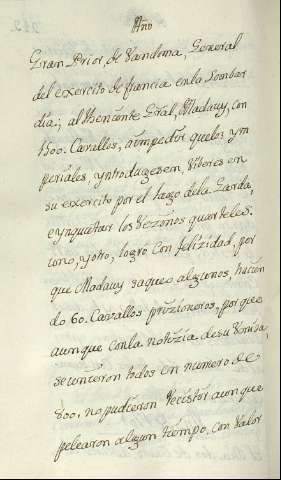 Año
Gran Prior, de Vandoma, General
del exercito de francia en la Lombar
dia; al thenente Gral, Maduuy, con
1500. Cavallos, a impedir que los ym
periales, yntroduzesen, Viberes en
su exercito por el lago de la Garda,
e ynquietar los Vezzinos quarteles.
uno, y otro, logrò con felizidad, por
que Maduuy saqueo algunos, hacien
do 60. Cavallos prizioneros, por que
aunque con la notizia de su Venida,
se unieron todos en numero de
800. no pudieron recistir aunque
pelearon algun tiempo, con Valor